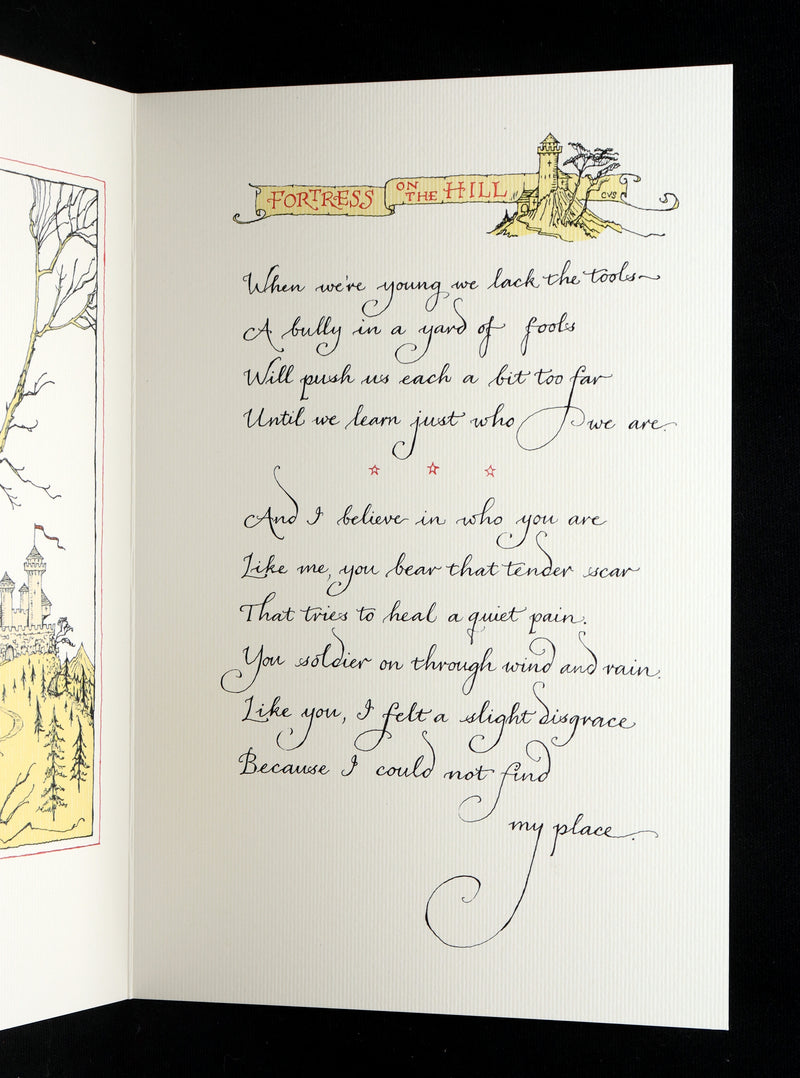 FORTRESS ON THE HILL
CVS
When we're young we lack the tools
A bully in a yard of fools
Will push us each a bit too far
Until we learn just who we are.
And I believe in who you are
Like me, you bear that tender scar
That tries to heal a quiet pain.
You soldier on through wind and rain.
Like you, I felt a slight disgrace
Because I could not find
my place.